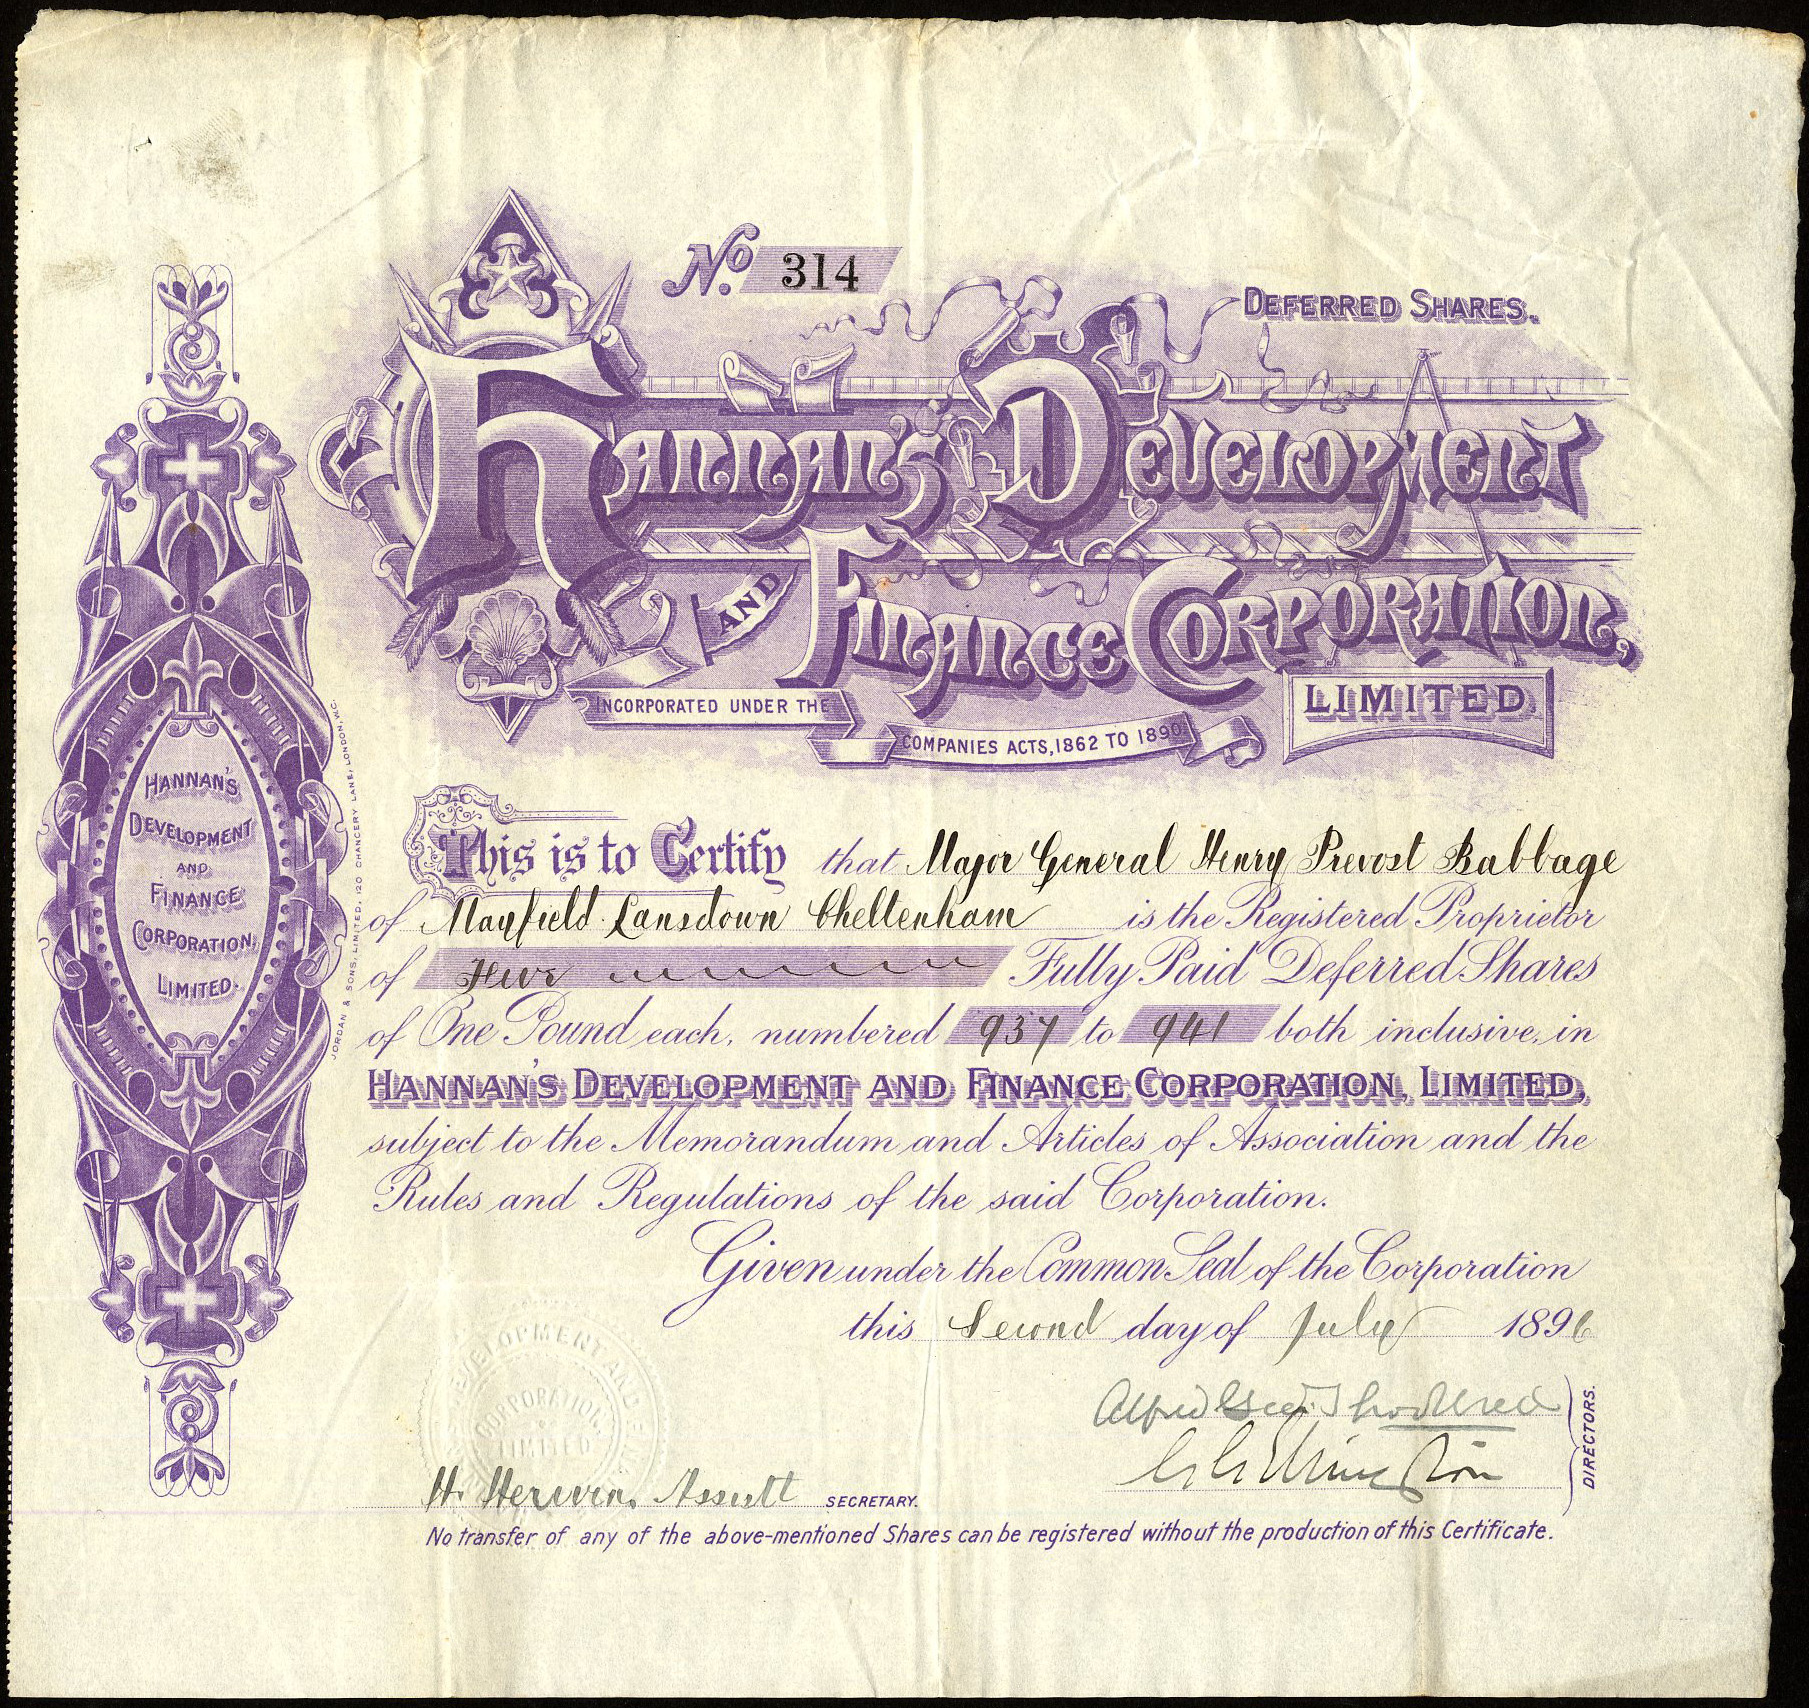 No. 314
DEFERRED SHARES.
HANNAN'S DEVELOPMENT
AND FINANCE CORPORATION,
LIMITED.
INCORPORATED UNDER THE
COMPANIES ACTS, 1862 TO 1890
HANNAN'S
DEVELOPMENT
AND
FINANCE
CORPORATION,
LIMITED.
JORDAN & SONS, LIMITED, 120 CHANCERY LANE, LONDON, W.C.
This is to Certify that Major General Henry Prevost Babbage
of Mayfield Lansdown Cheltenham is the Registered Proprietor
of Five Fully Paid Deferred Shares
of One Pound each, numbered 937 to 941 both inclusive, in
HANNAN'S DEVELOPMENT AND FINANCE CORPORATION, LIMITED,
subject to the Memorandum and Articles of Association and the
Rules and Regulations of the said Corporation.
Given under the Common Seal of the Corporation
this Second day of July 1896
Alfred
DIRECTORS.
DEVELOPMENT AND
CORPORATION
LIMITED
H. SECRETARY.
No transfer of any of the above-mentioned Shares can be registered without the production of this Certificate.